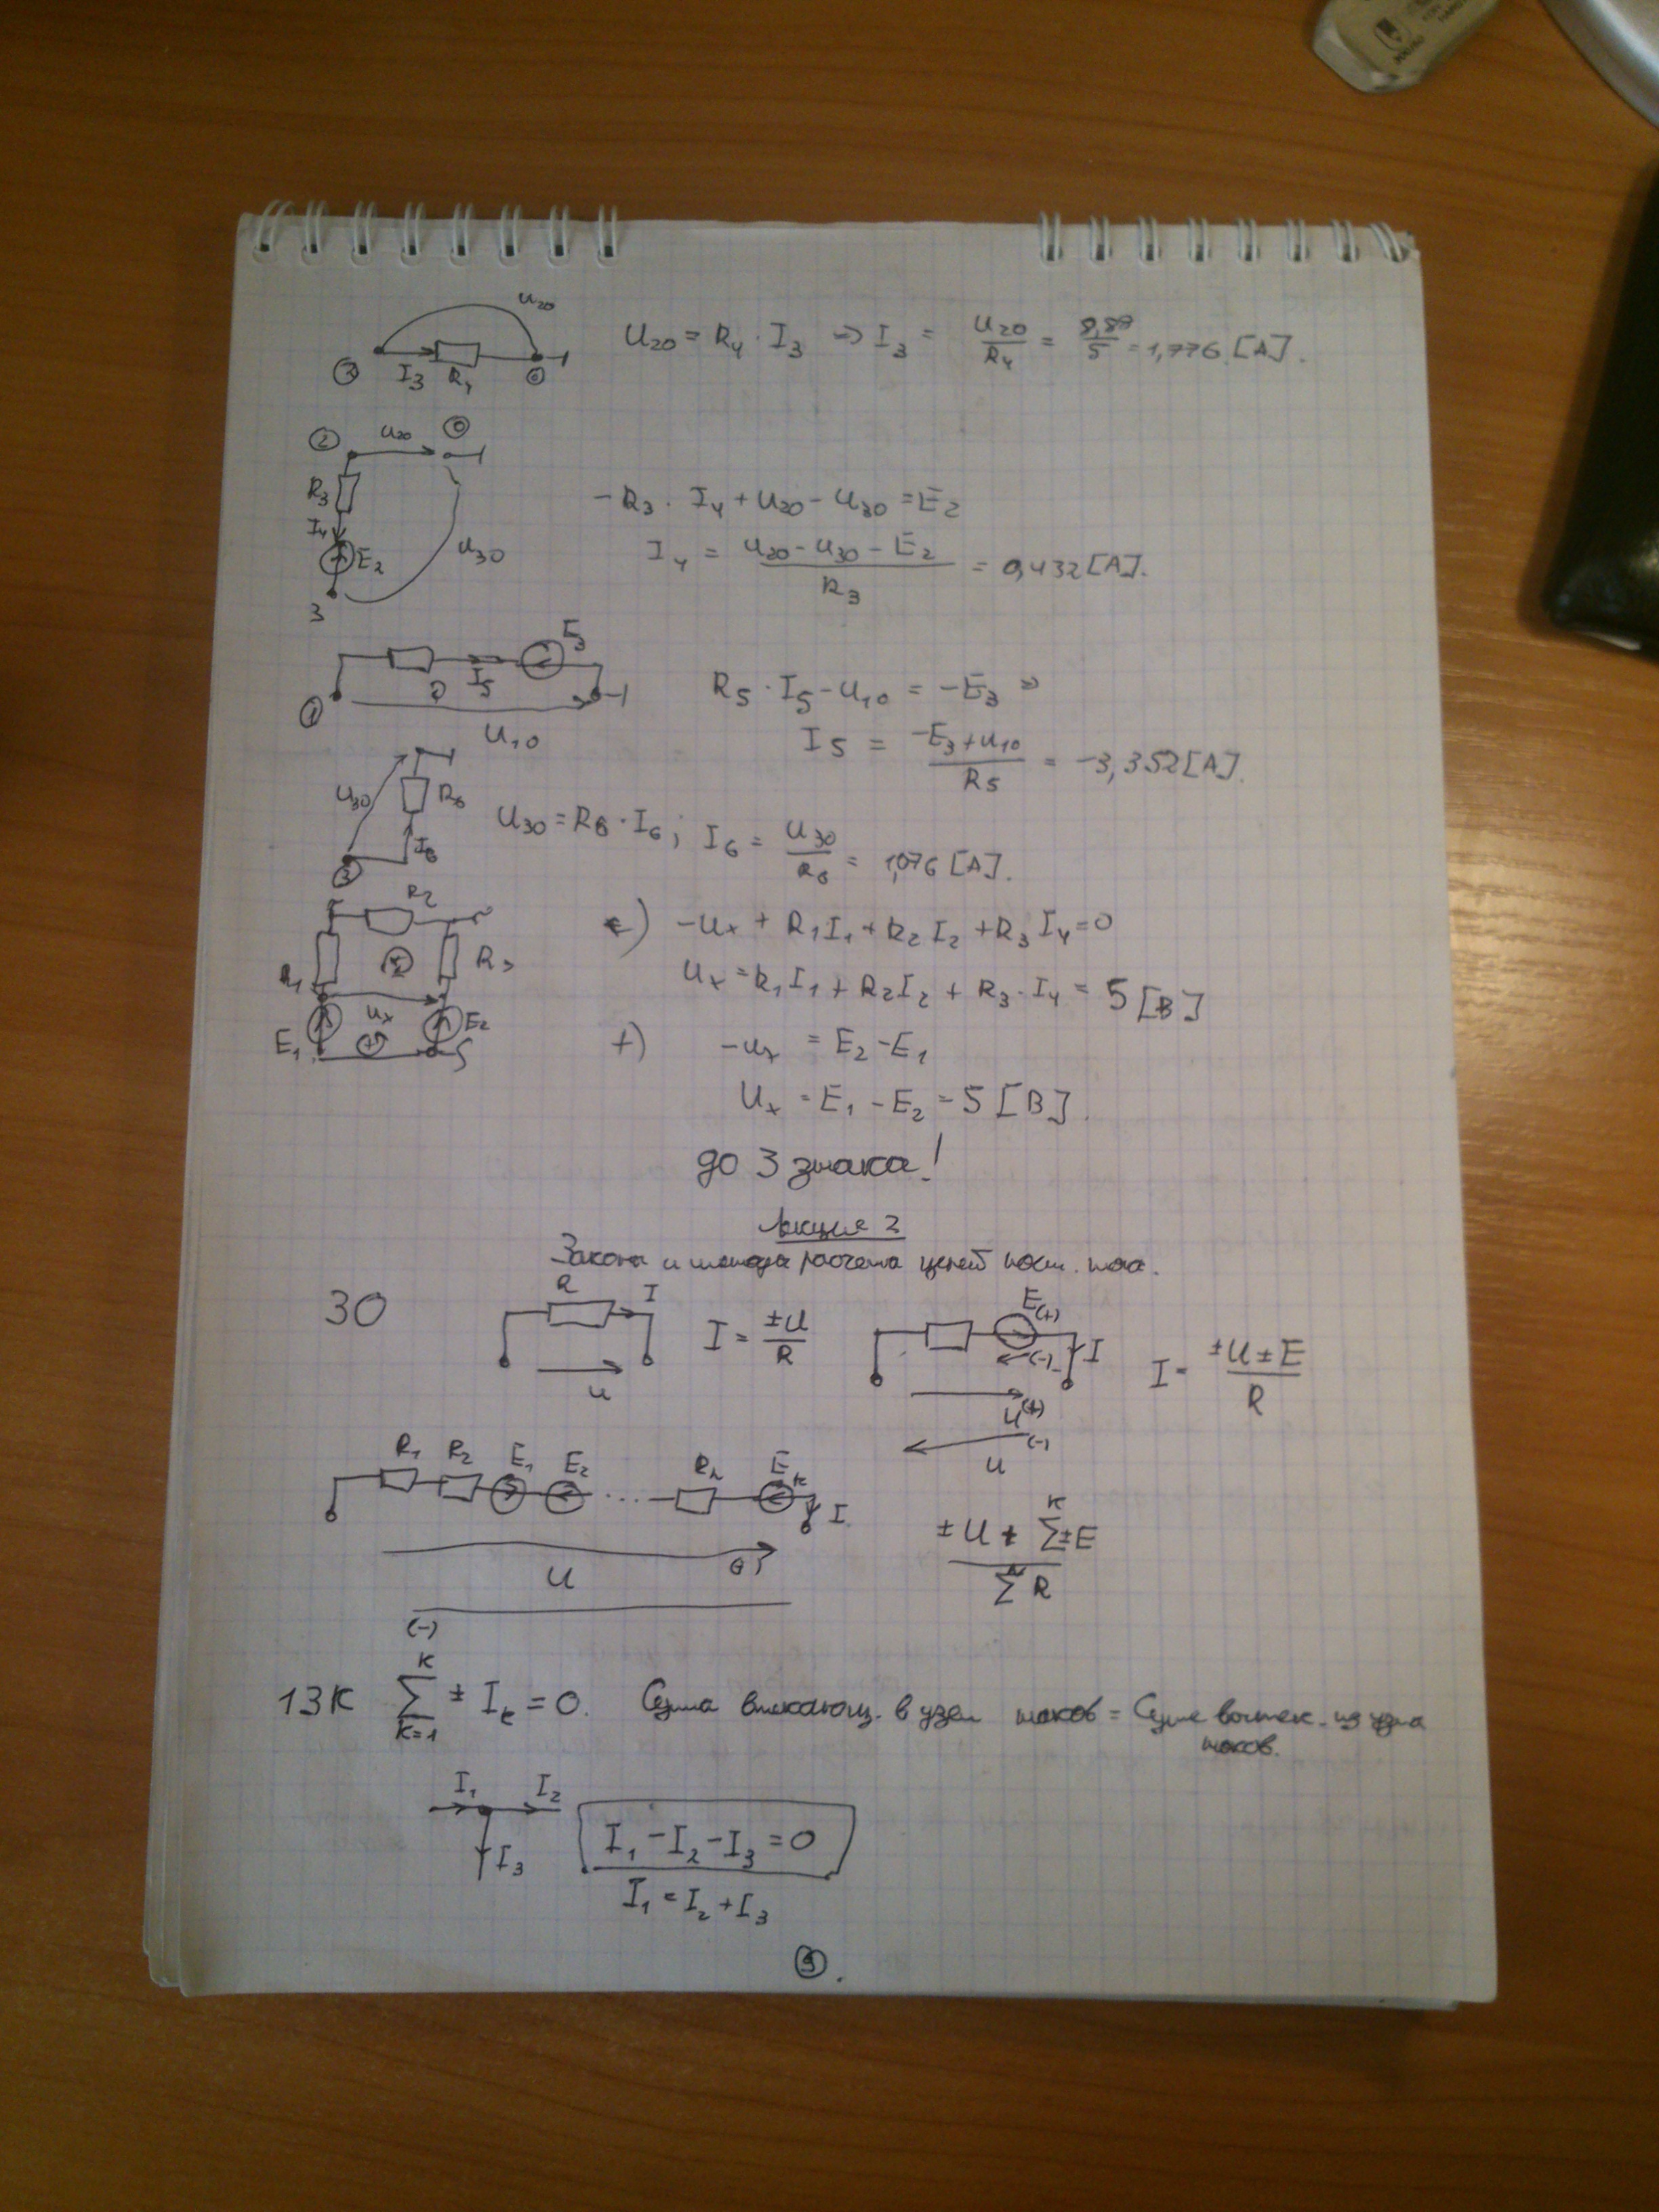 U20
U20 = R4 · I3 => I3 = U20/R4 = 8,88/5 = 1,776 [A].
I3 R4 0
2 U20 0
R3
I4
E2 U30
3
-R3 · I4 + U20 - U30 = E2
I4 = (U20 - U30 - E2)/R3 = 0,432 [A].
E3
I5
1
U10
R5 · I5 - U10 = -E3 =>
I5 = (-E3 + U10)/R5 = -3,352 [A].
U30 R6
I6
3
U30 = R6 · I6; I6 = U30/R6 = 1,076 [A].
R2
R1 R3
Ux
E1 E2
-Ux + R1I1 + R2I2 + R3I4 = 0
Ux = R1I1 + R2I2 + R3 · I4 = 5 [В]
-Ux = E2 - E1
Ux = E1 - E2 = 5 [В].
до 3 знака!
Лекция 2
Законы и методы расчета цепей пост. тока.
ЗО
R I
U
I = ±U/R
E(+)
(-) I
U(+)
(-)
U
I = (±U ± E)/R
R1 R2 E1 E2 ... Rn Ek
I
U
(-)
(±U + Σ^K ±E)/(Σ^N R)
1ЗК Σ(K=1..K) ± Ik = 0. Сумма втекающ. в узел токов = Сумме вытек. из узла
токов.
I1 I2
I3
I1 - I2 - I3 = 0
I1 = I2 + I3